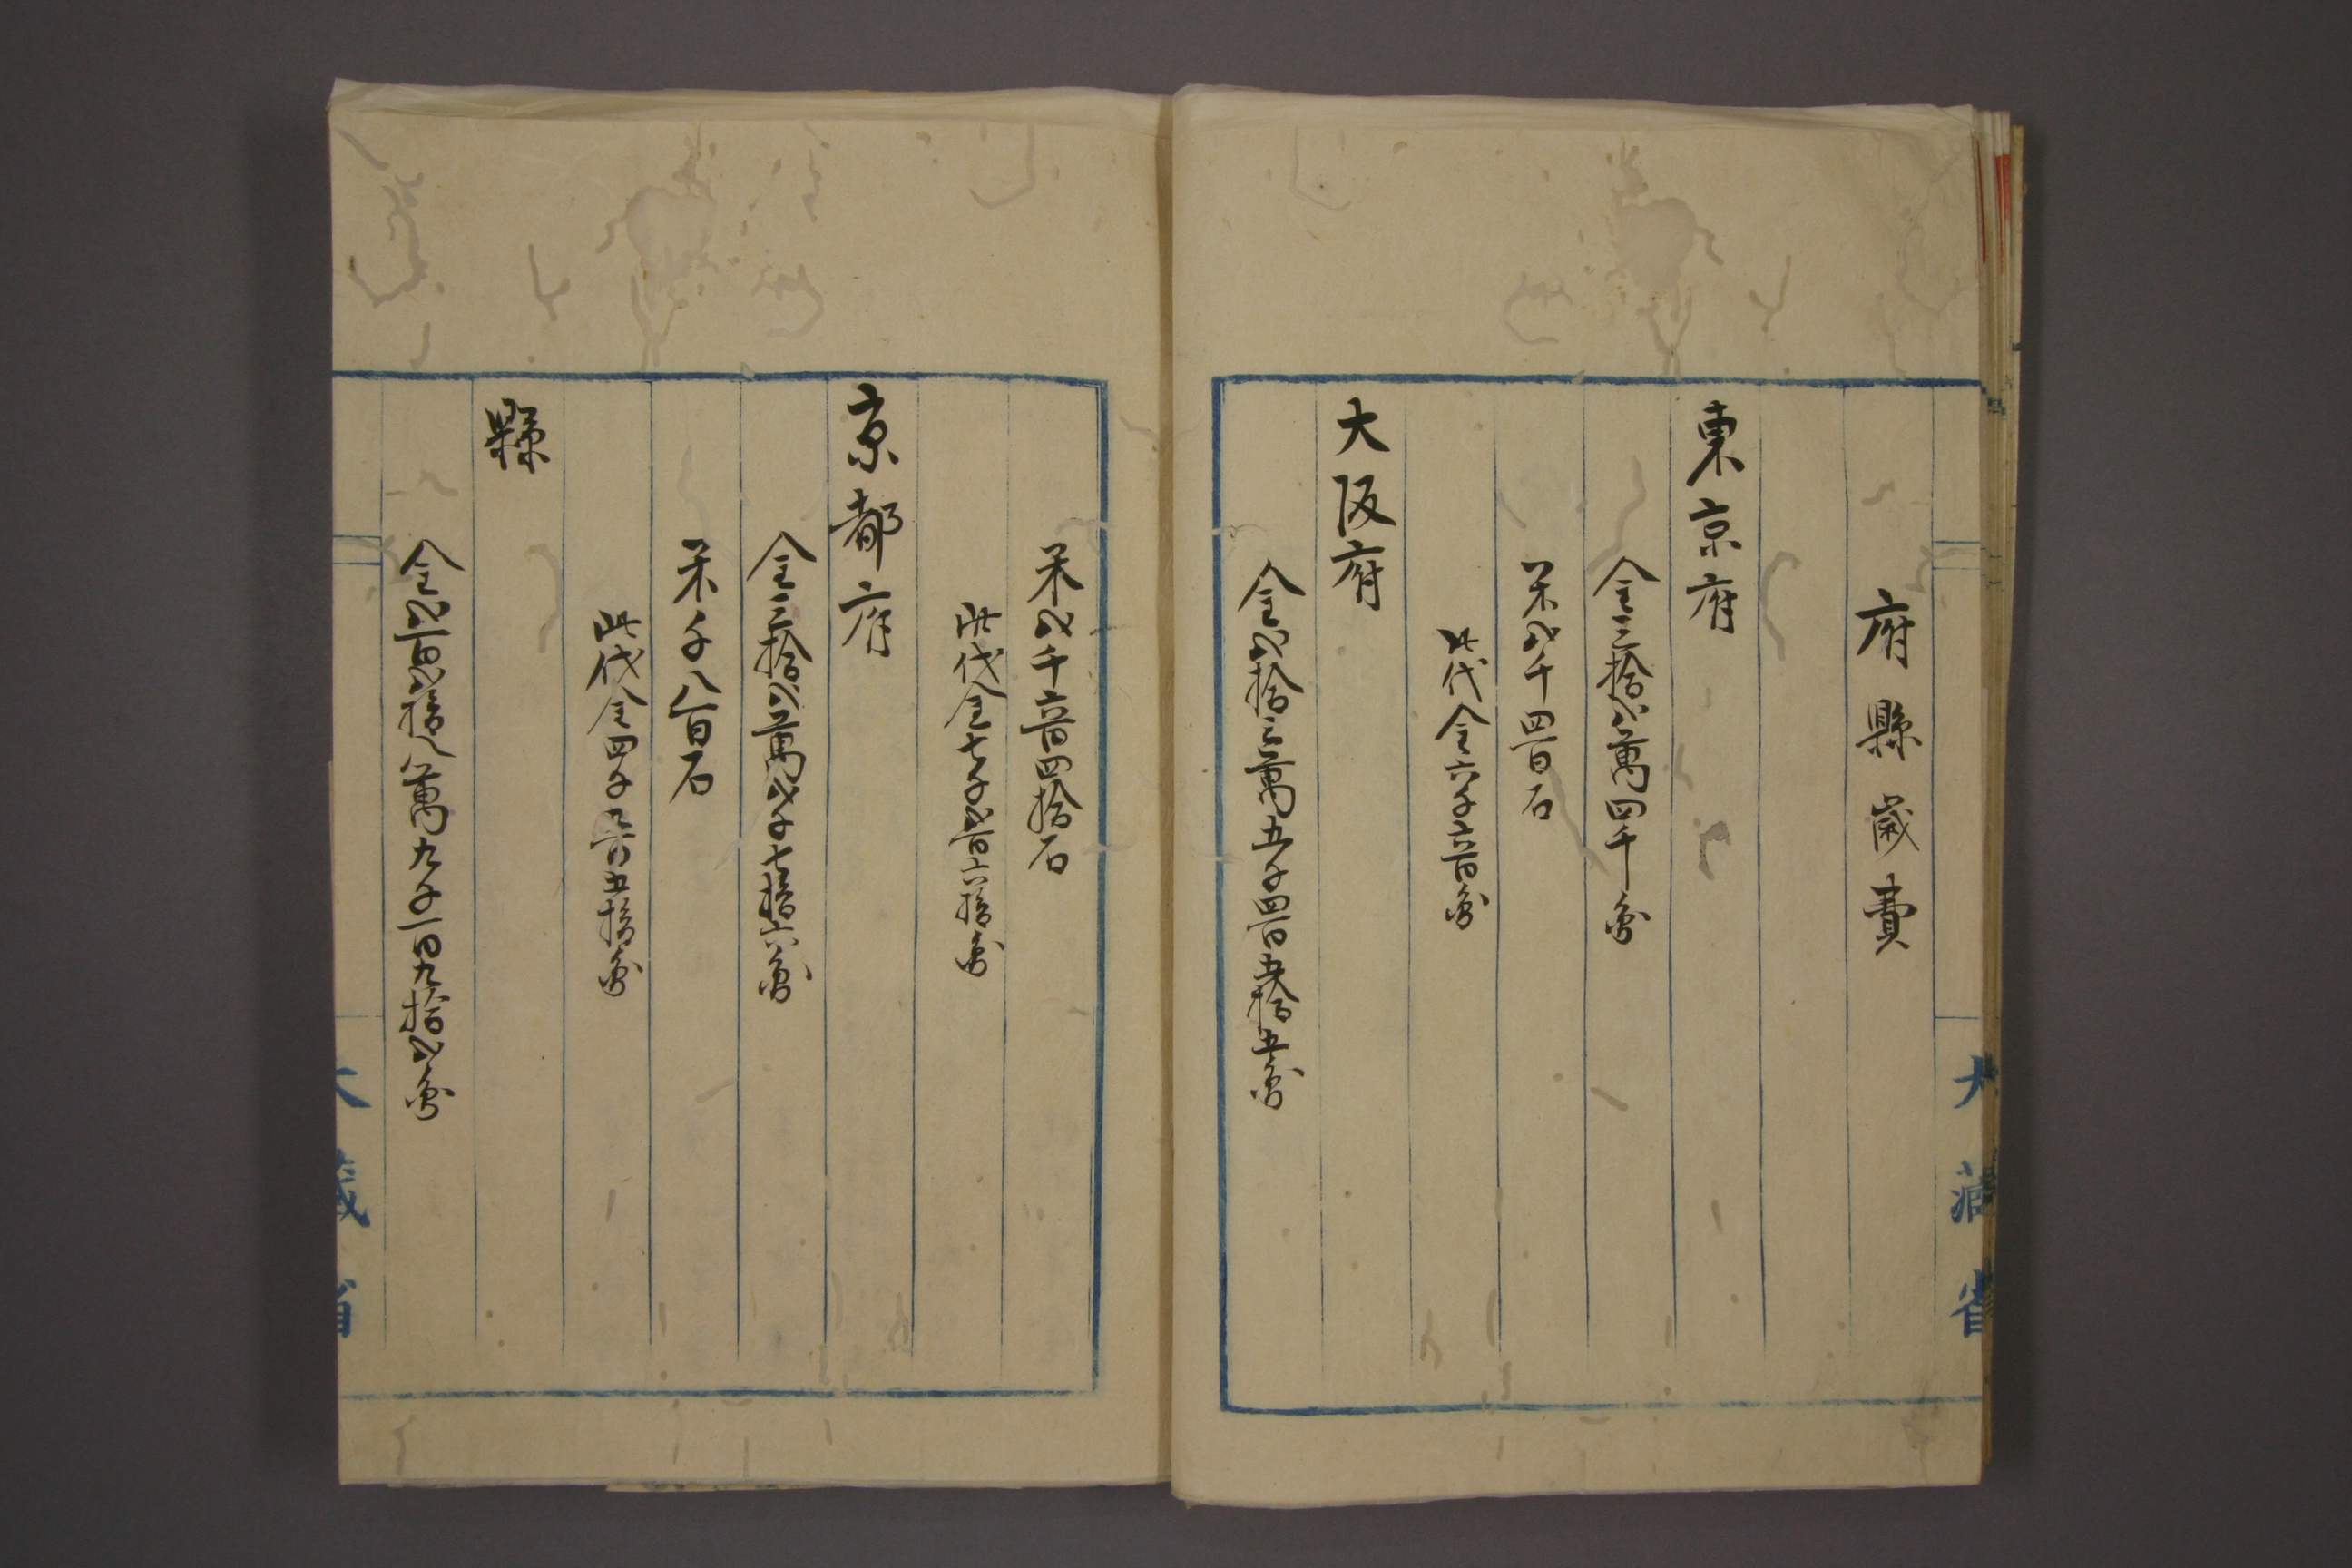 大藏省
府縣歳費
東京府
金三拾弐萬四千両
米弐千四百石
此代金六千六百両
大阪府
金弐拾三萬五千四百五拾五両
米弐千六百四拾石
此代金七千弐百六拾両
京都府
金三拾弐萬弐千七拾六両
米千八百石
此代金四千九百五拾両
縣
金弐百弐拾八萬九千一百九拾弐両
大藏省